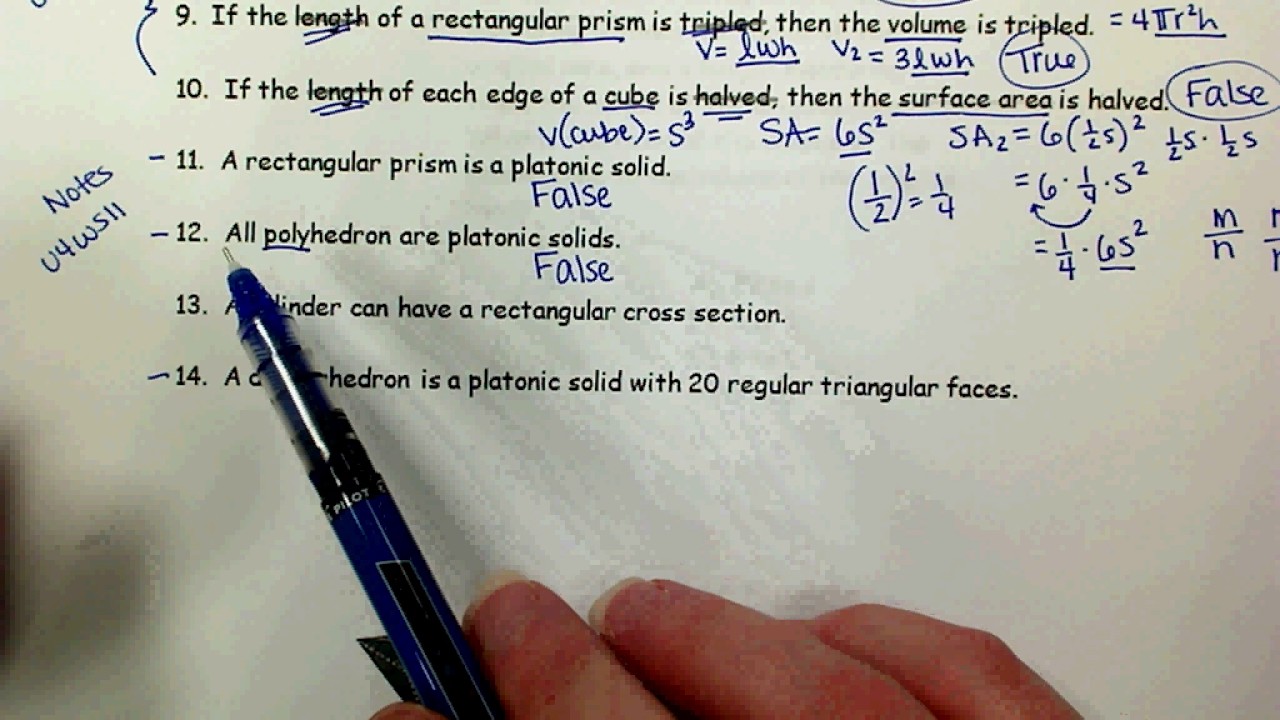 9. If the length of a rectangular prism is tripled, then the volume is tripled. = 4πr²h
V= lwh V₂ = 3lwh True
10. If the length of each edge of a cube is halved, then the surface area is halved. False
V(cube)= S³ SA= 6s² SA₂ = 6(½s)² ½s · ½s
11. A rectangular prism is a platonic solid.
False
(1/2)² = 1/4
= 6 · 1/4 · s²
Notes
U4WS11
12. All polyhedron are platonic solids.
False
= 1/4 · 6s²
m/n
13. A cylinder can have a rectangular cross section.
14. A hedron is a platonic solid with 20 regular triangular faces.
PILOT